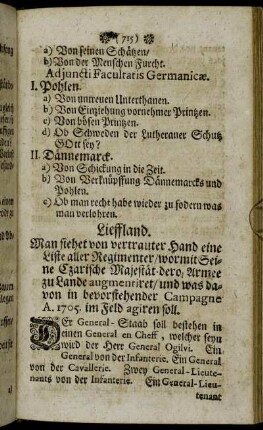 (715)
a) Von seinen Schätzen/
b) Von der Menschen Furcht.
Adjuncti Facultatis Germanicæ.
I. Pohlen.
a) Von untreuen Unterthanen.
b) Von Einziehung vornehmer Printzen.
c) Von bösen Printzen.
d) Ob Schweden der Lutheraner Schutz
GOtt sey?
II. Dännemarck.
a) Von Schickung in die Zeit.
b) Von Verknüpffung Dännemarcks und
Pohlen.
c) Ob man recht habe wieder zu fodern was
man verlohren.
Lieffland.
Man siehet von vertrauter Hand eine
Liste aller Regimenter/ wormit Sei-
ne Czarische Majestät dero Armee
zu Lande augmentiret/ und was da-
von in bevorstehender Campagne
A. 1705. im Feld agiren soll.
DEr General-Staab soll bestehen in
einen General en Cheff, welcher seyn
wird der Herr General Ogilvi. Ein
General von der Infanterie. Ein General
von der Cavallerie. Zwey General-Lieute-
nants von der Infanterie. Ein General-Lieu-
tenant